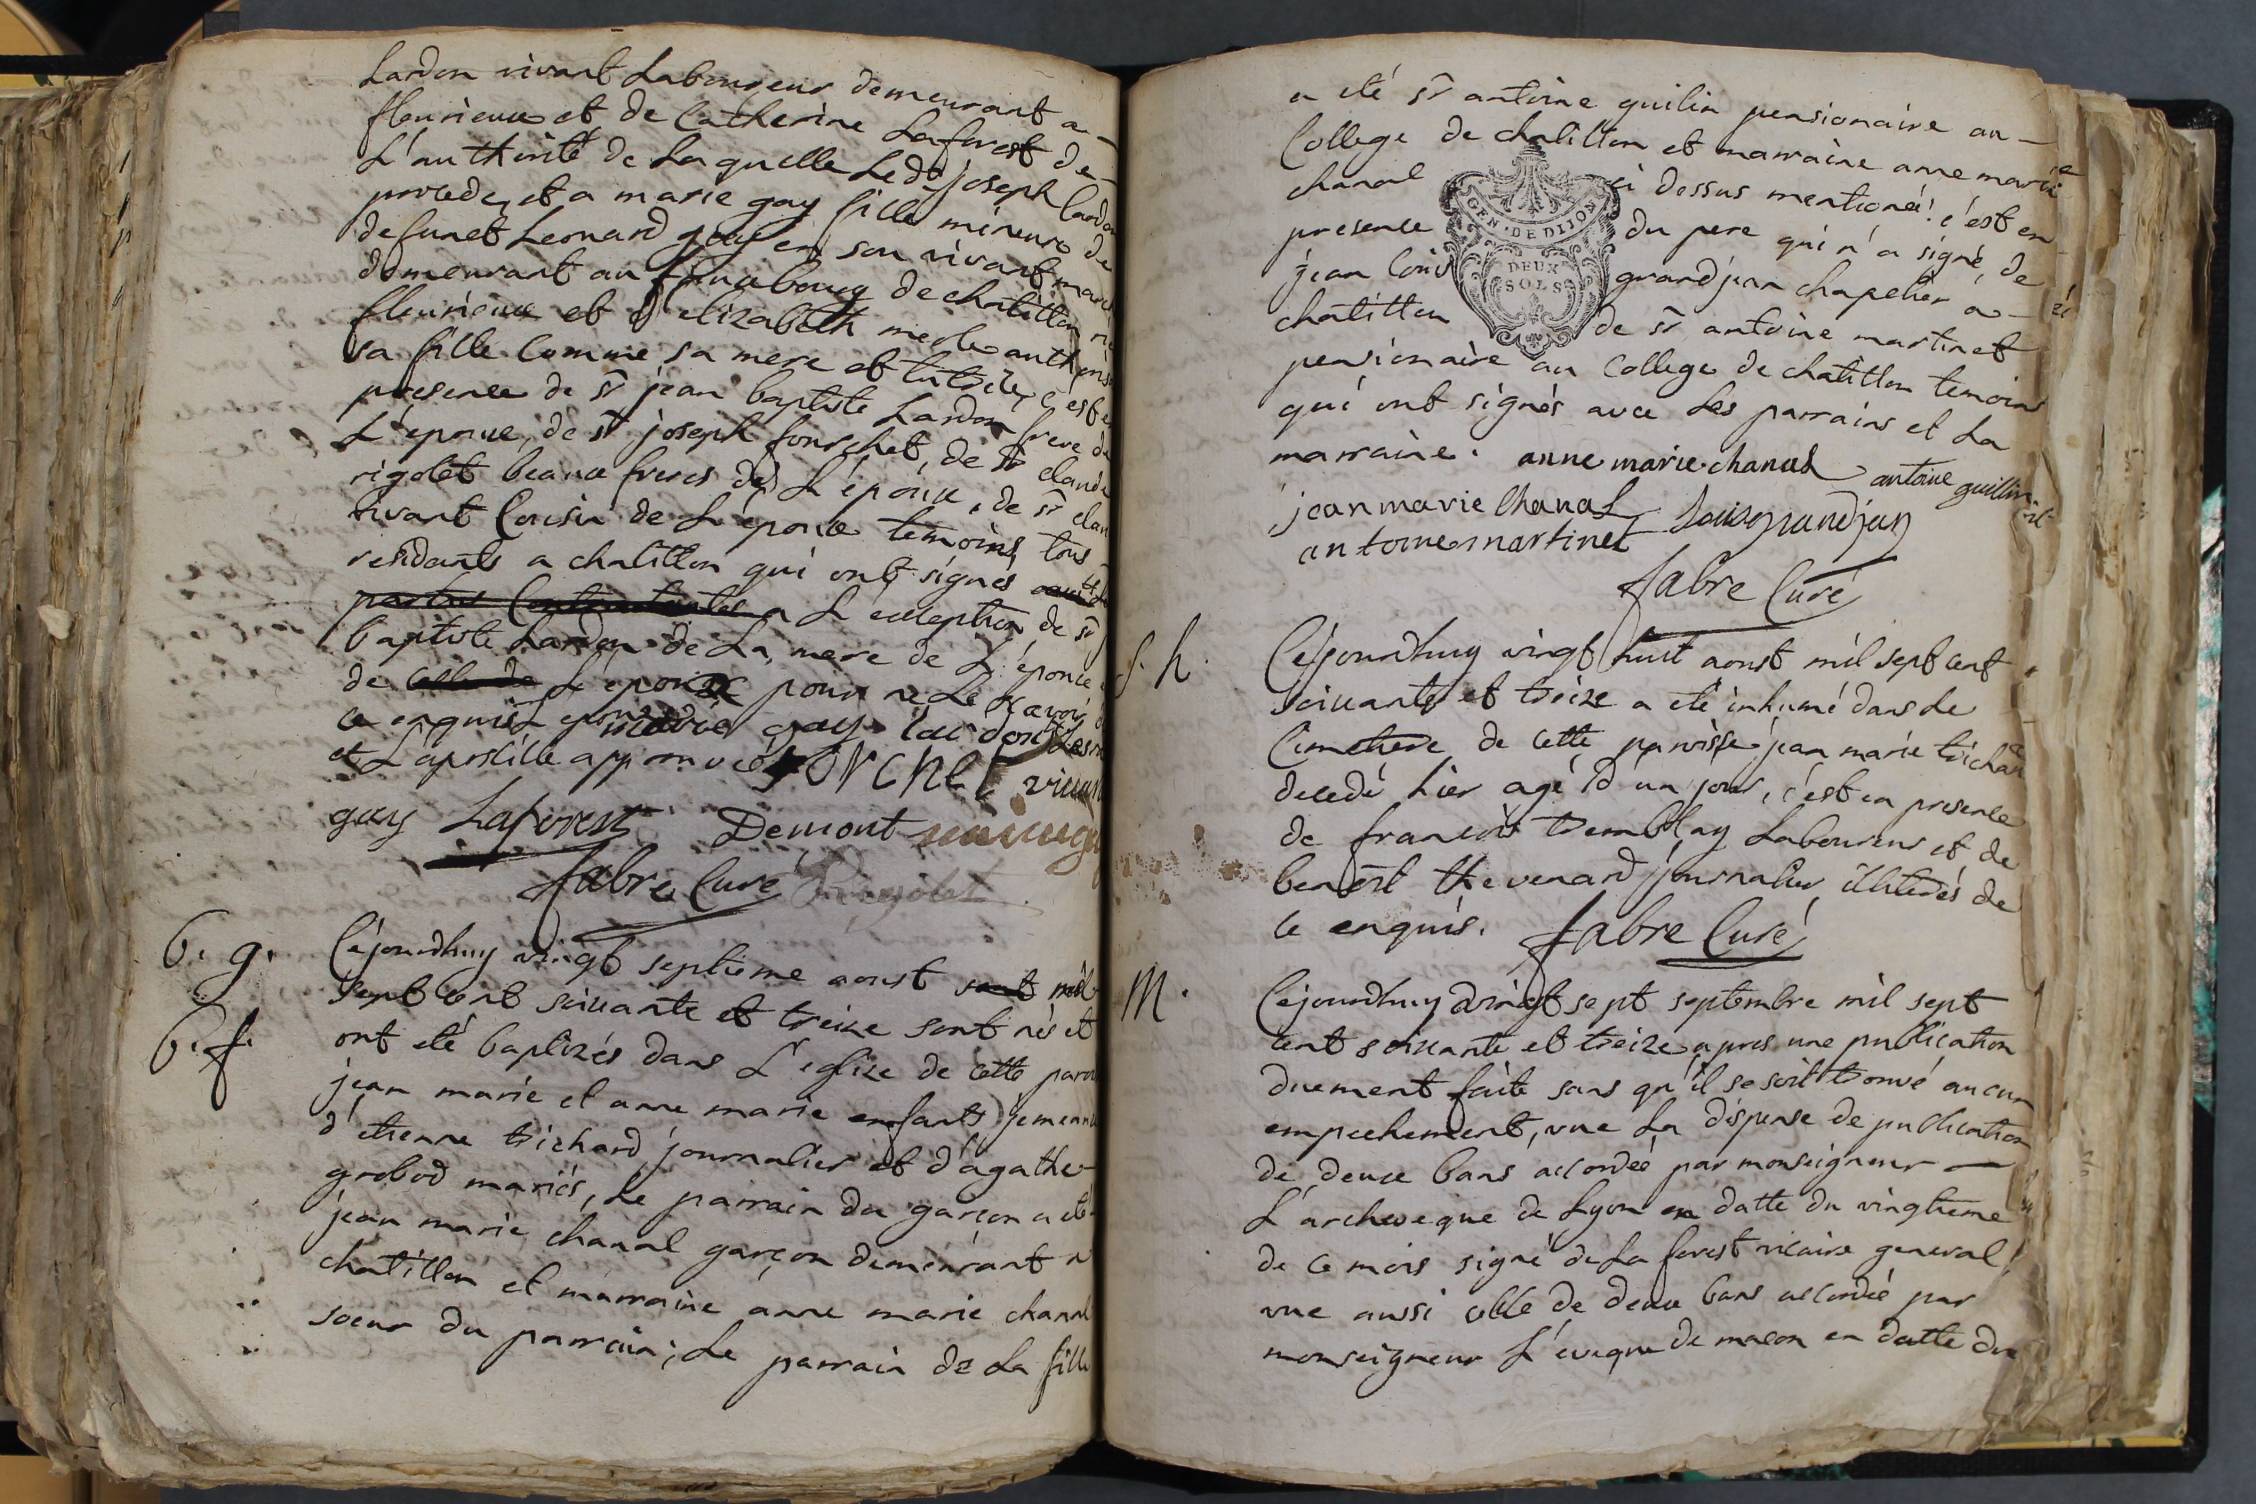 Lardon vivant Laboureur demeurant a
fleurieux et de Catherine Laforest de
L'authorité de Laquelle Led.t joseph Lardon
procede, et a marie gay fille mineure de
defunct Leonard gay en son vivant
demeurant au fauxbourg de chatillon
fleurieux et d'elizabeth merle
sa fille Comme sa mere et tutrice, c'est en
presence de sr jean baptiste Lardon frere de
L'epoux, de sr joseph fourchet, de sr claude
rigolet beaux freres de L'epoux, de sr
vivant Cousin de L'epouse temoins tous
residants a chatillon qui ont signés
parties Contractantes a L'exception de sr
baptiste Lardon de La mere de L'epouse
de L'epoux pour ne Le scavoir de
ce enquis
et L'apostille approuvés fourchet
gay Laforest Demont
fabre Curé Rigolet
b. g.
b. f.
Cejourdhuy vingt septieme aoust sont mil
sept cent soixante et treize sont nés et
ont eté baptizés dans L'eglize de cette
jean marie et anne marie enfants
d'etienne trichard journalier et d'agathe
grobod mariés, Le parrain du garçon a eté
jean marie chanal garçon demeurant a
chatillon et marraine anne marie chanal
soeur du parrain; Le parrain de La fille
a eté sr antoine guilin pensionaire au
College de chatillon et marraine anne marie
chanal ci dessus mentioneé! c'est en
presence du pere qui n'a signé, de
jean Louis grandjean chapelier a
chatillon de sr antoine martinet
GEN · DE DIJON
DEUX
SOLS
pensionaire au College de chatillon temoins
qui ont signés avec Les parrains et La
marraine. anne marie chanal antoine guillin
jean marie Chanal Louis grandjean
antoine martinet
fabre Curé
S. h.
Cejourdhuy vingt huit aoust mil sept cent
soixante et treize a eté inhumé dans Le
Cimetiere de cette paroisse jean marie trichard
decedé hier agé d'un jour, c'est en presence
de françois tremblay Laboureur et de
benoit thevenard journalier illiterés de
ce enquis. fabre Curé
M.
Cejourdhuy vingt sept septembre mil sept
cent soixante et treize apres une publication
duement faite sans qu'il se soit trouvé aucun
empechement, vue La dispense de publication
de deux bans accordée par monseigneur
L'archeveque de Lyon en datte du vingtieme
de ce mois signé de La forest vicaire general,
vue aussi celle de deux bans accordée par
monseigneur L'eveque de macon en datte du